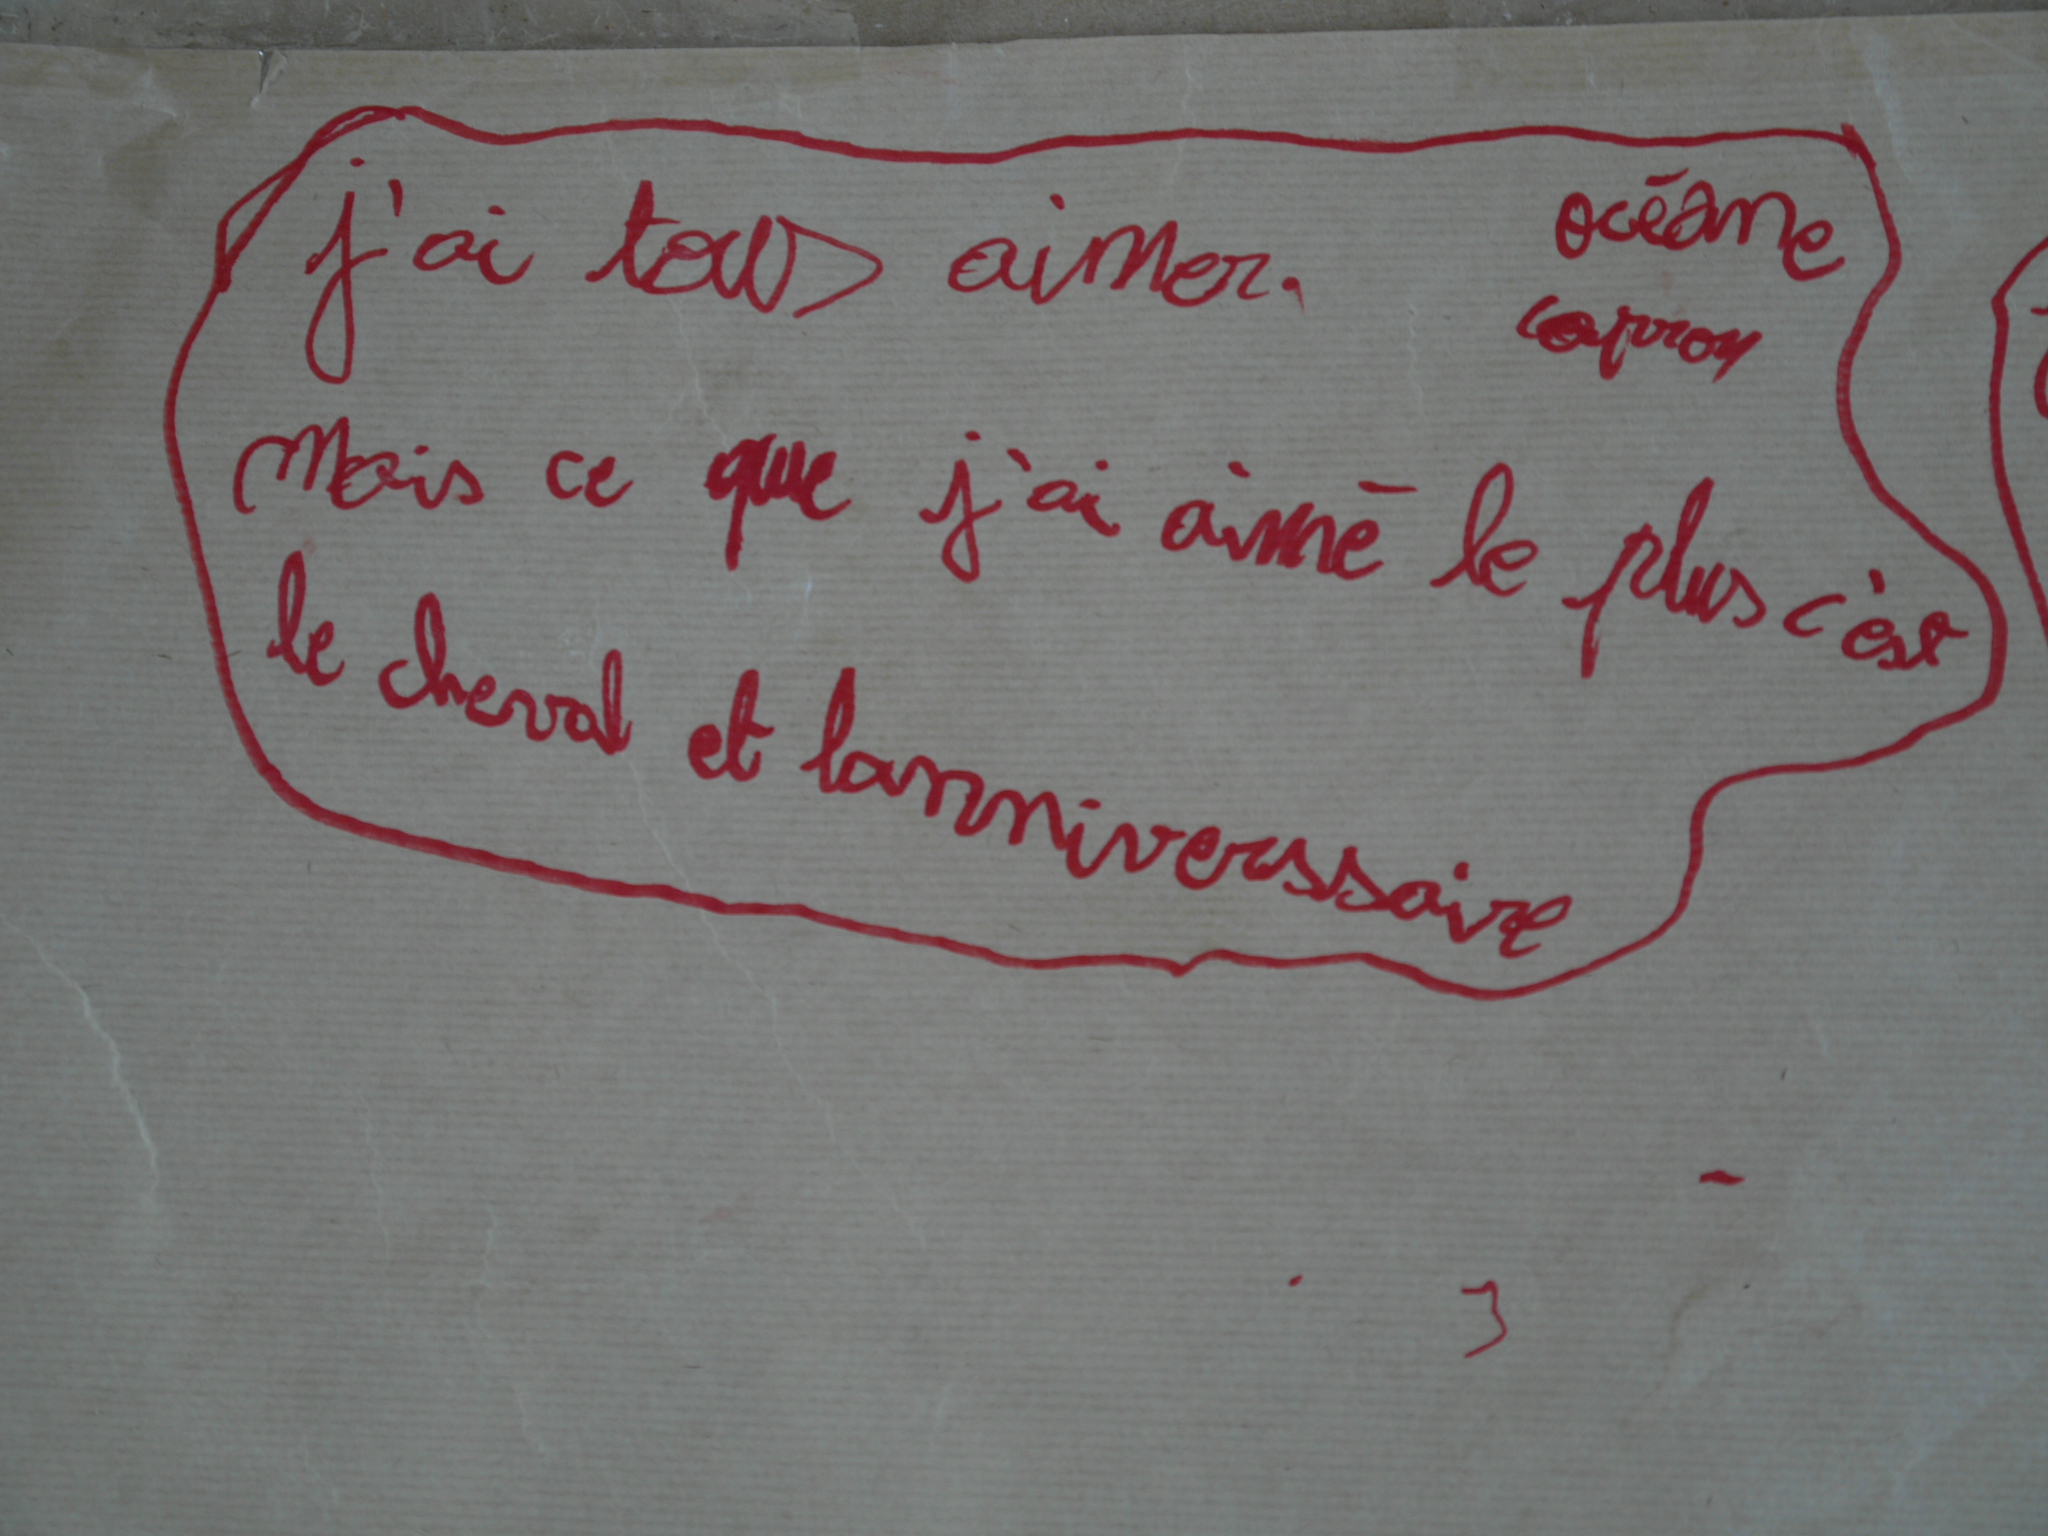 j'ai tous aimer.
océane
capron
Mais ce que j'ai aimé le plus c'est
le cheval et lanniverssaire